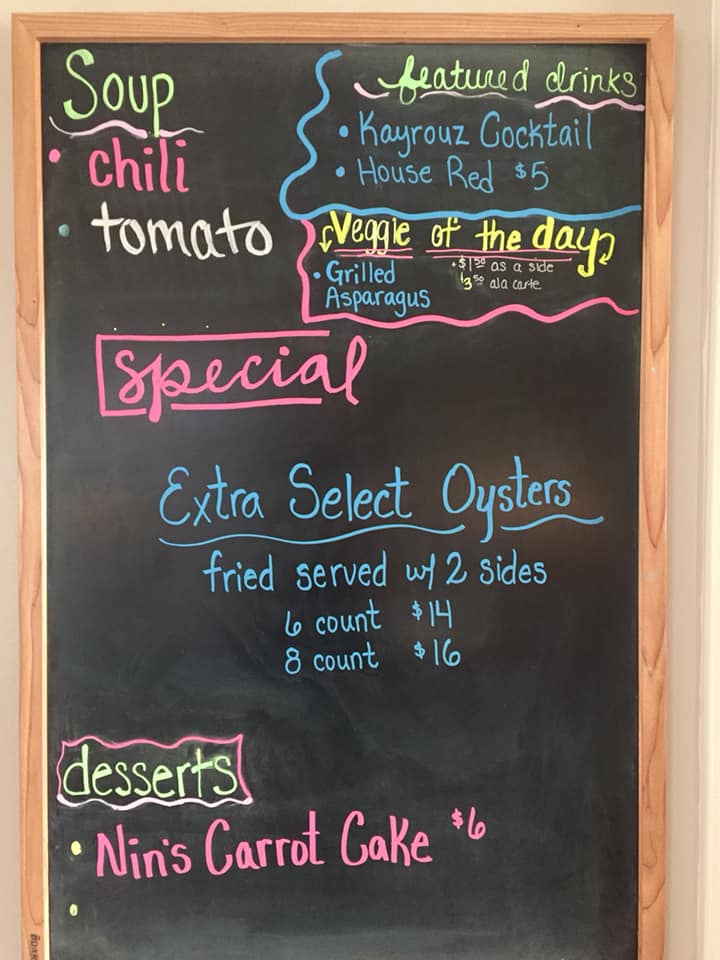 Soup
• chili
• tomato
featured drinks
• Kayrouz Cocktail
• House Red $5
Veggie of the day
• Grilled
Asparagus
• $1.50 as a side
$3.50 ala carte
Special
Extra Select Oysters
fried served w/ 2 sides
6 count $14
8 count $16
desserts
• Nin's Carrot Cake $6
•